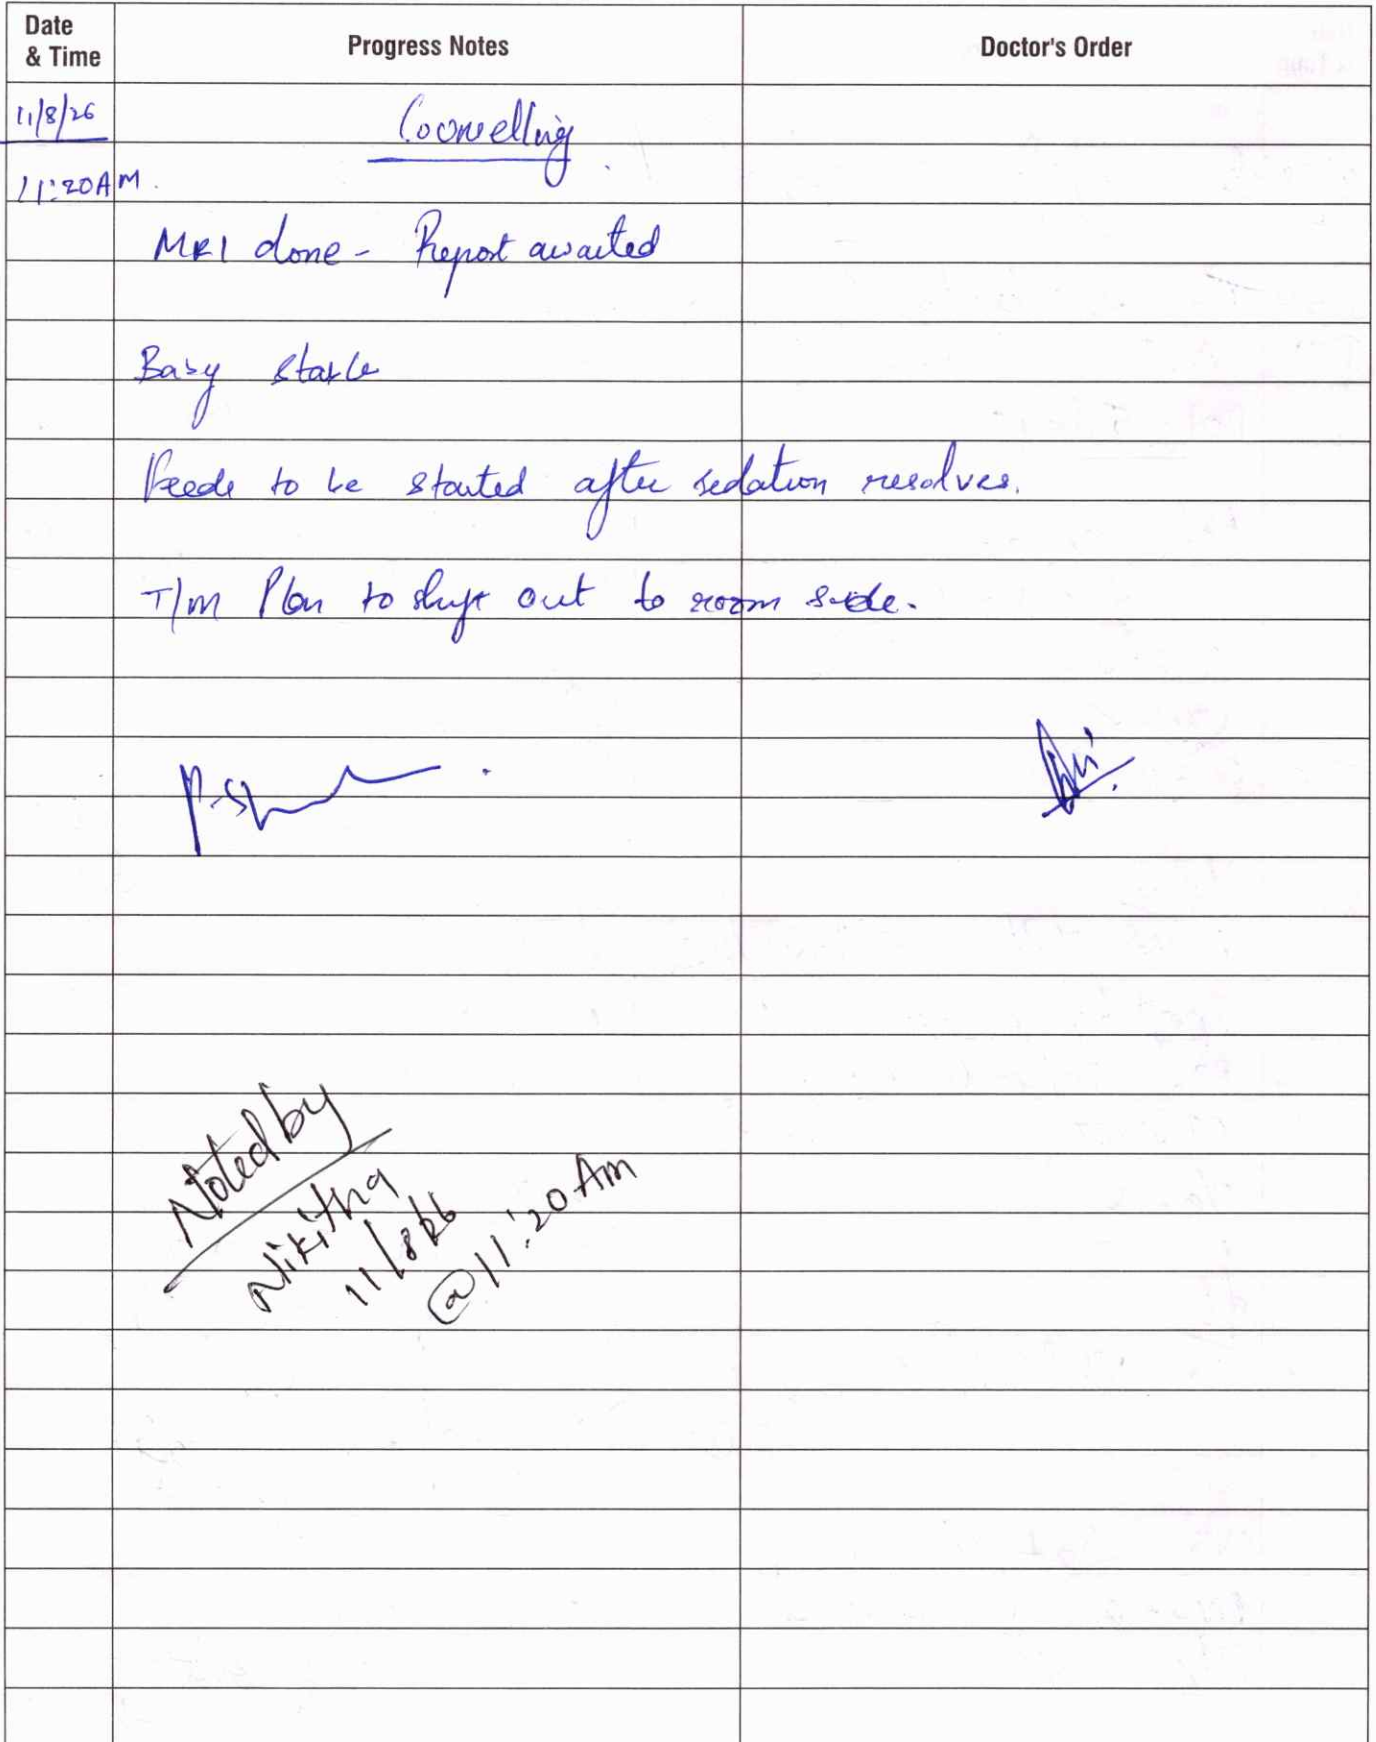 Date & Time
Progress Notes
Doctor's Order
11/8/26
Counselling
11:20AM.
MRI done - Report awaited
Baby stable
Feeds to be started after sedation resolves.
T/m Plan to shift out to room side.
Noted by
Nikitha
11/8/26
@11:20 Am